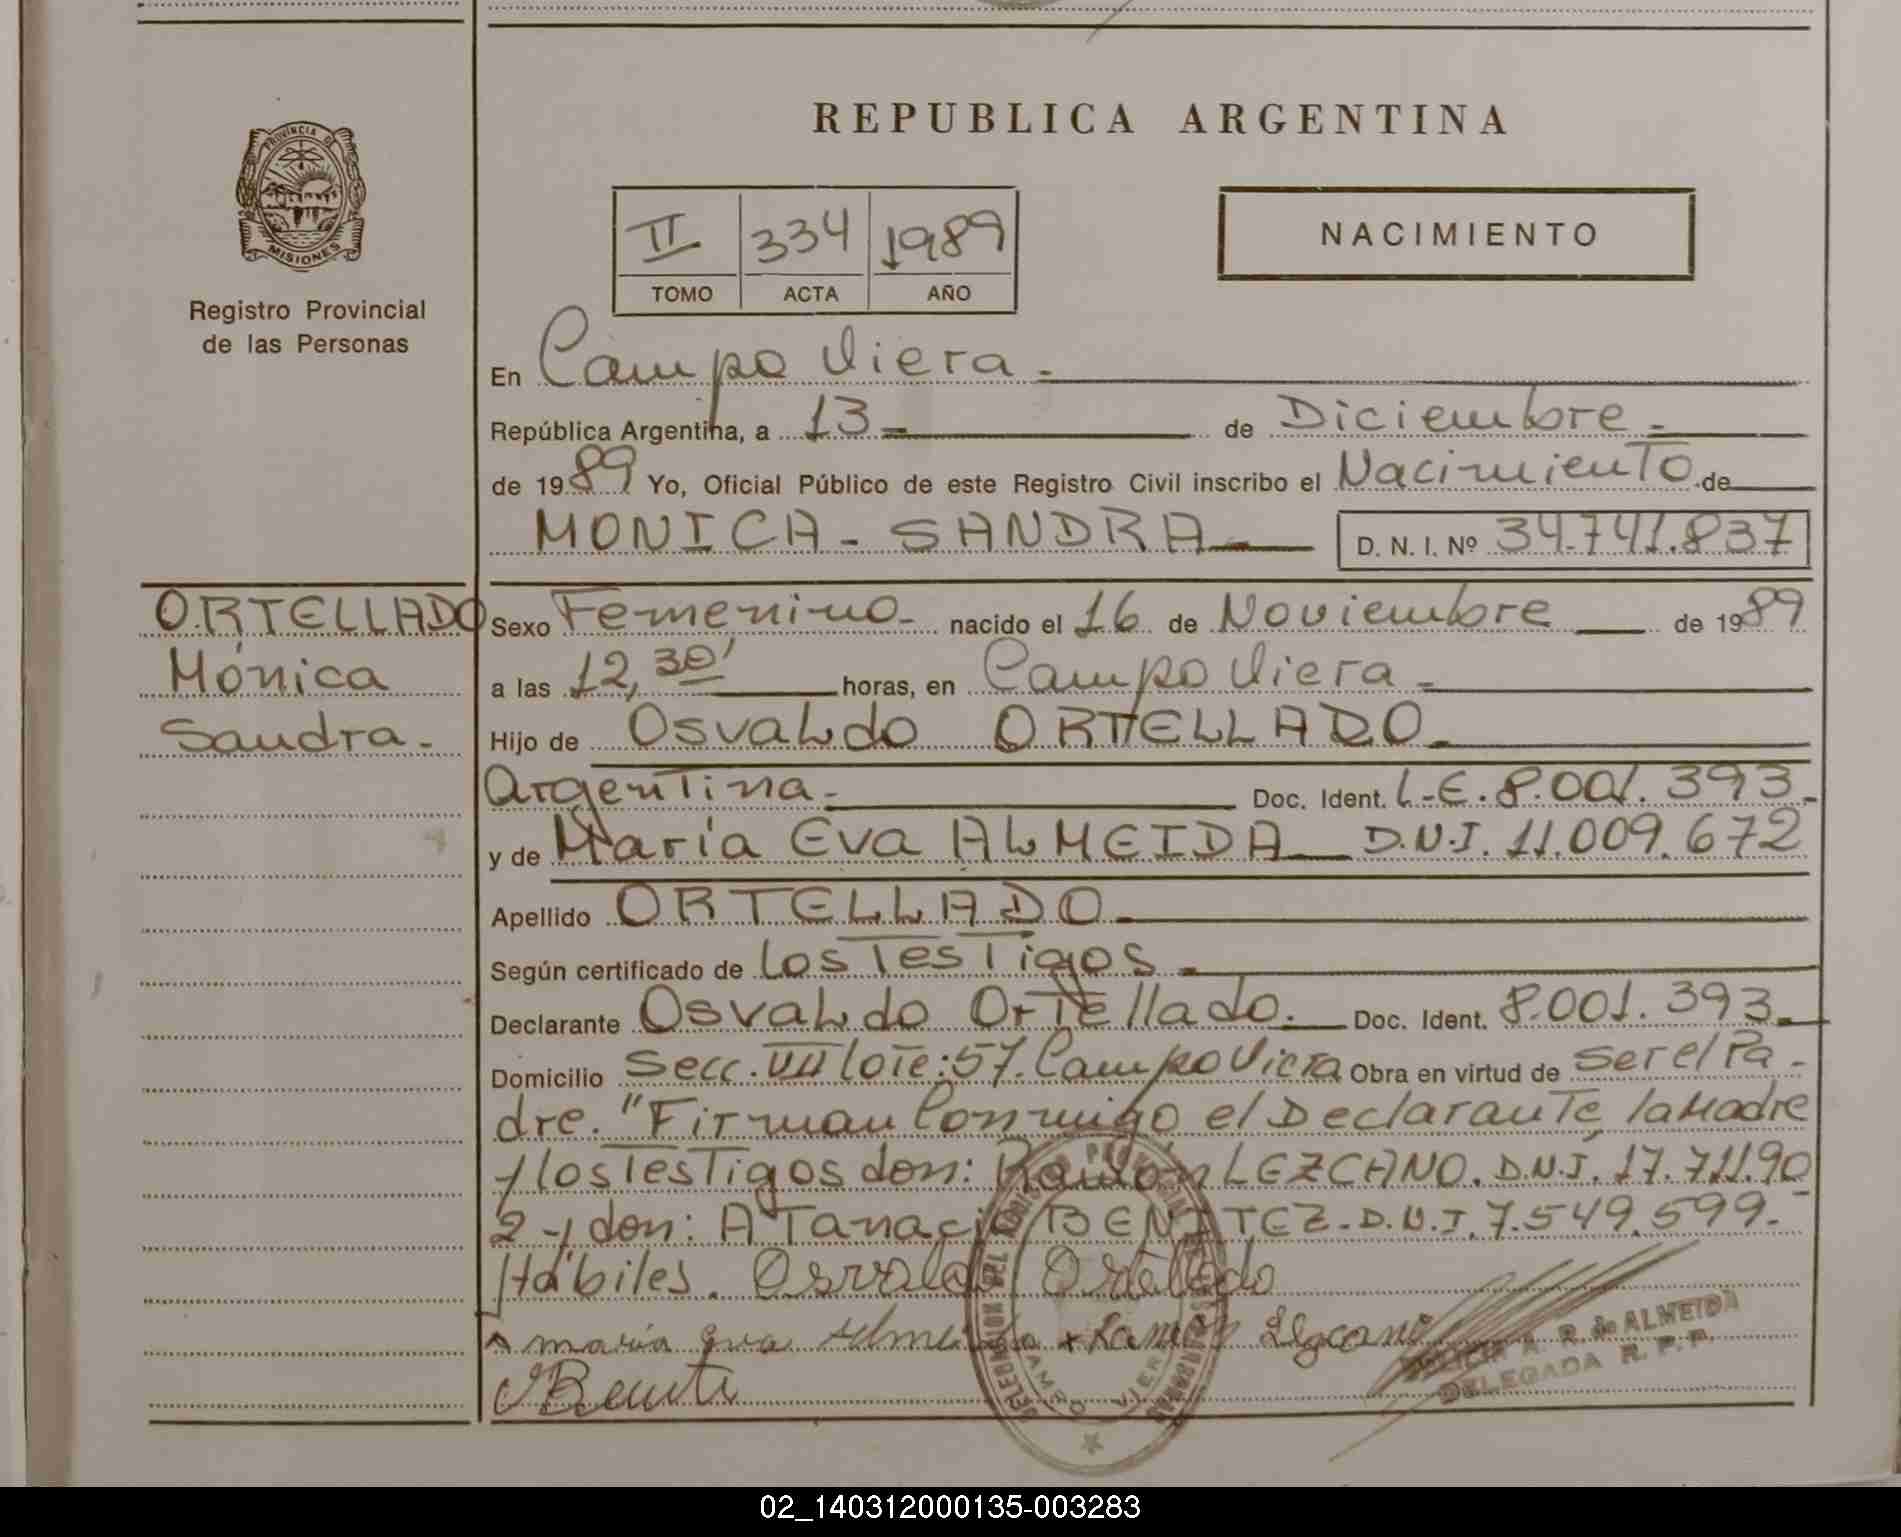 REPUBLICA ARGENTINA
PROVINCIA DE
MISIONES
Registro Provincial
de las Personas
II 334 1989
TOMO ACTA AÑO
NACIMIENTO
En Campo Viera.
República Argentina, a 13 de Diciembre.
de 1989 Yo, Oficial Público de este Registro Civil inscribo el Nacimiento de
MONICA - SANDRA D. N. I. Nº 34.741.837
ORTELLADO
Mónica
Sandra.
Sexo Femenino. nacido el 16 de Noviembre de 1989
a las 12,30' horas, en Campo Viera.
Hijo de Osvaldo ORTELLADO.
Argentina. Doc. Ident. L.E. 8.001.393.
y de María Eva ALMEIDA D.N.I. 11.009.672
Apellido ORTELLADO.
Según certificado de Los Testigos.
Declarante Osvaldo Ortellado. Doc. Ident. 8.001.393.
Domicilio Secc. VII lote: 57. Campo Viera Obra en virtud de ser el Pa-
dre. "Firman Conmigo el Declarante, la Madre
y los Testigos don: Ramón LEZCANO. D.N.I. 17.711.90
2 y don: ATanacio BENITEZ. D.N.I. 7.549.599.-
Hábiles. Osvaldo Ortellado
maria Eva Almeida Ramon Lezcano
A. R. de ALMEIDA
DELEGADA R. P. P.
02_140312000135-003283